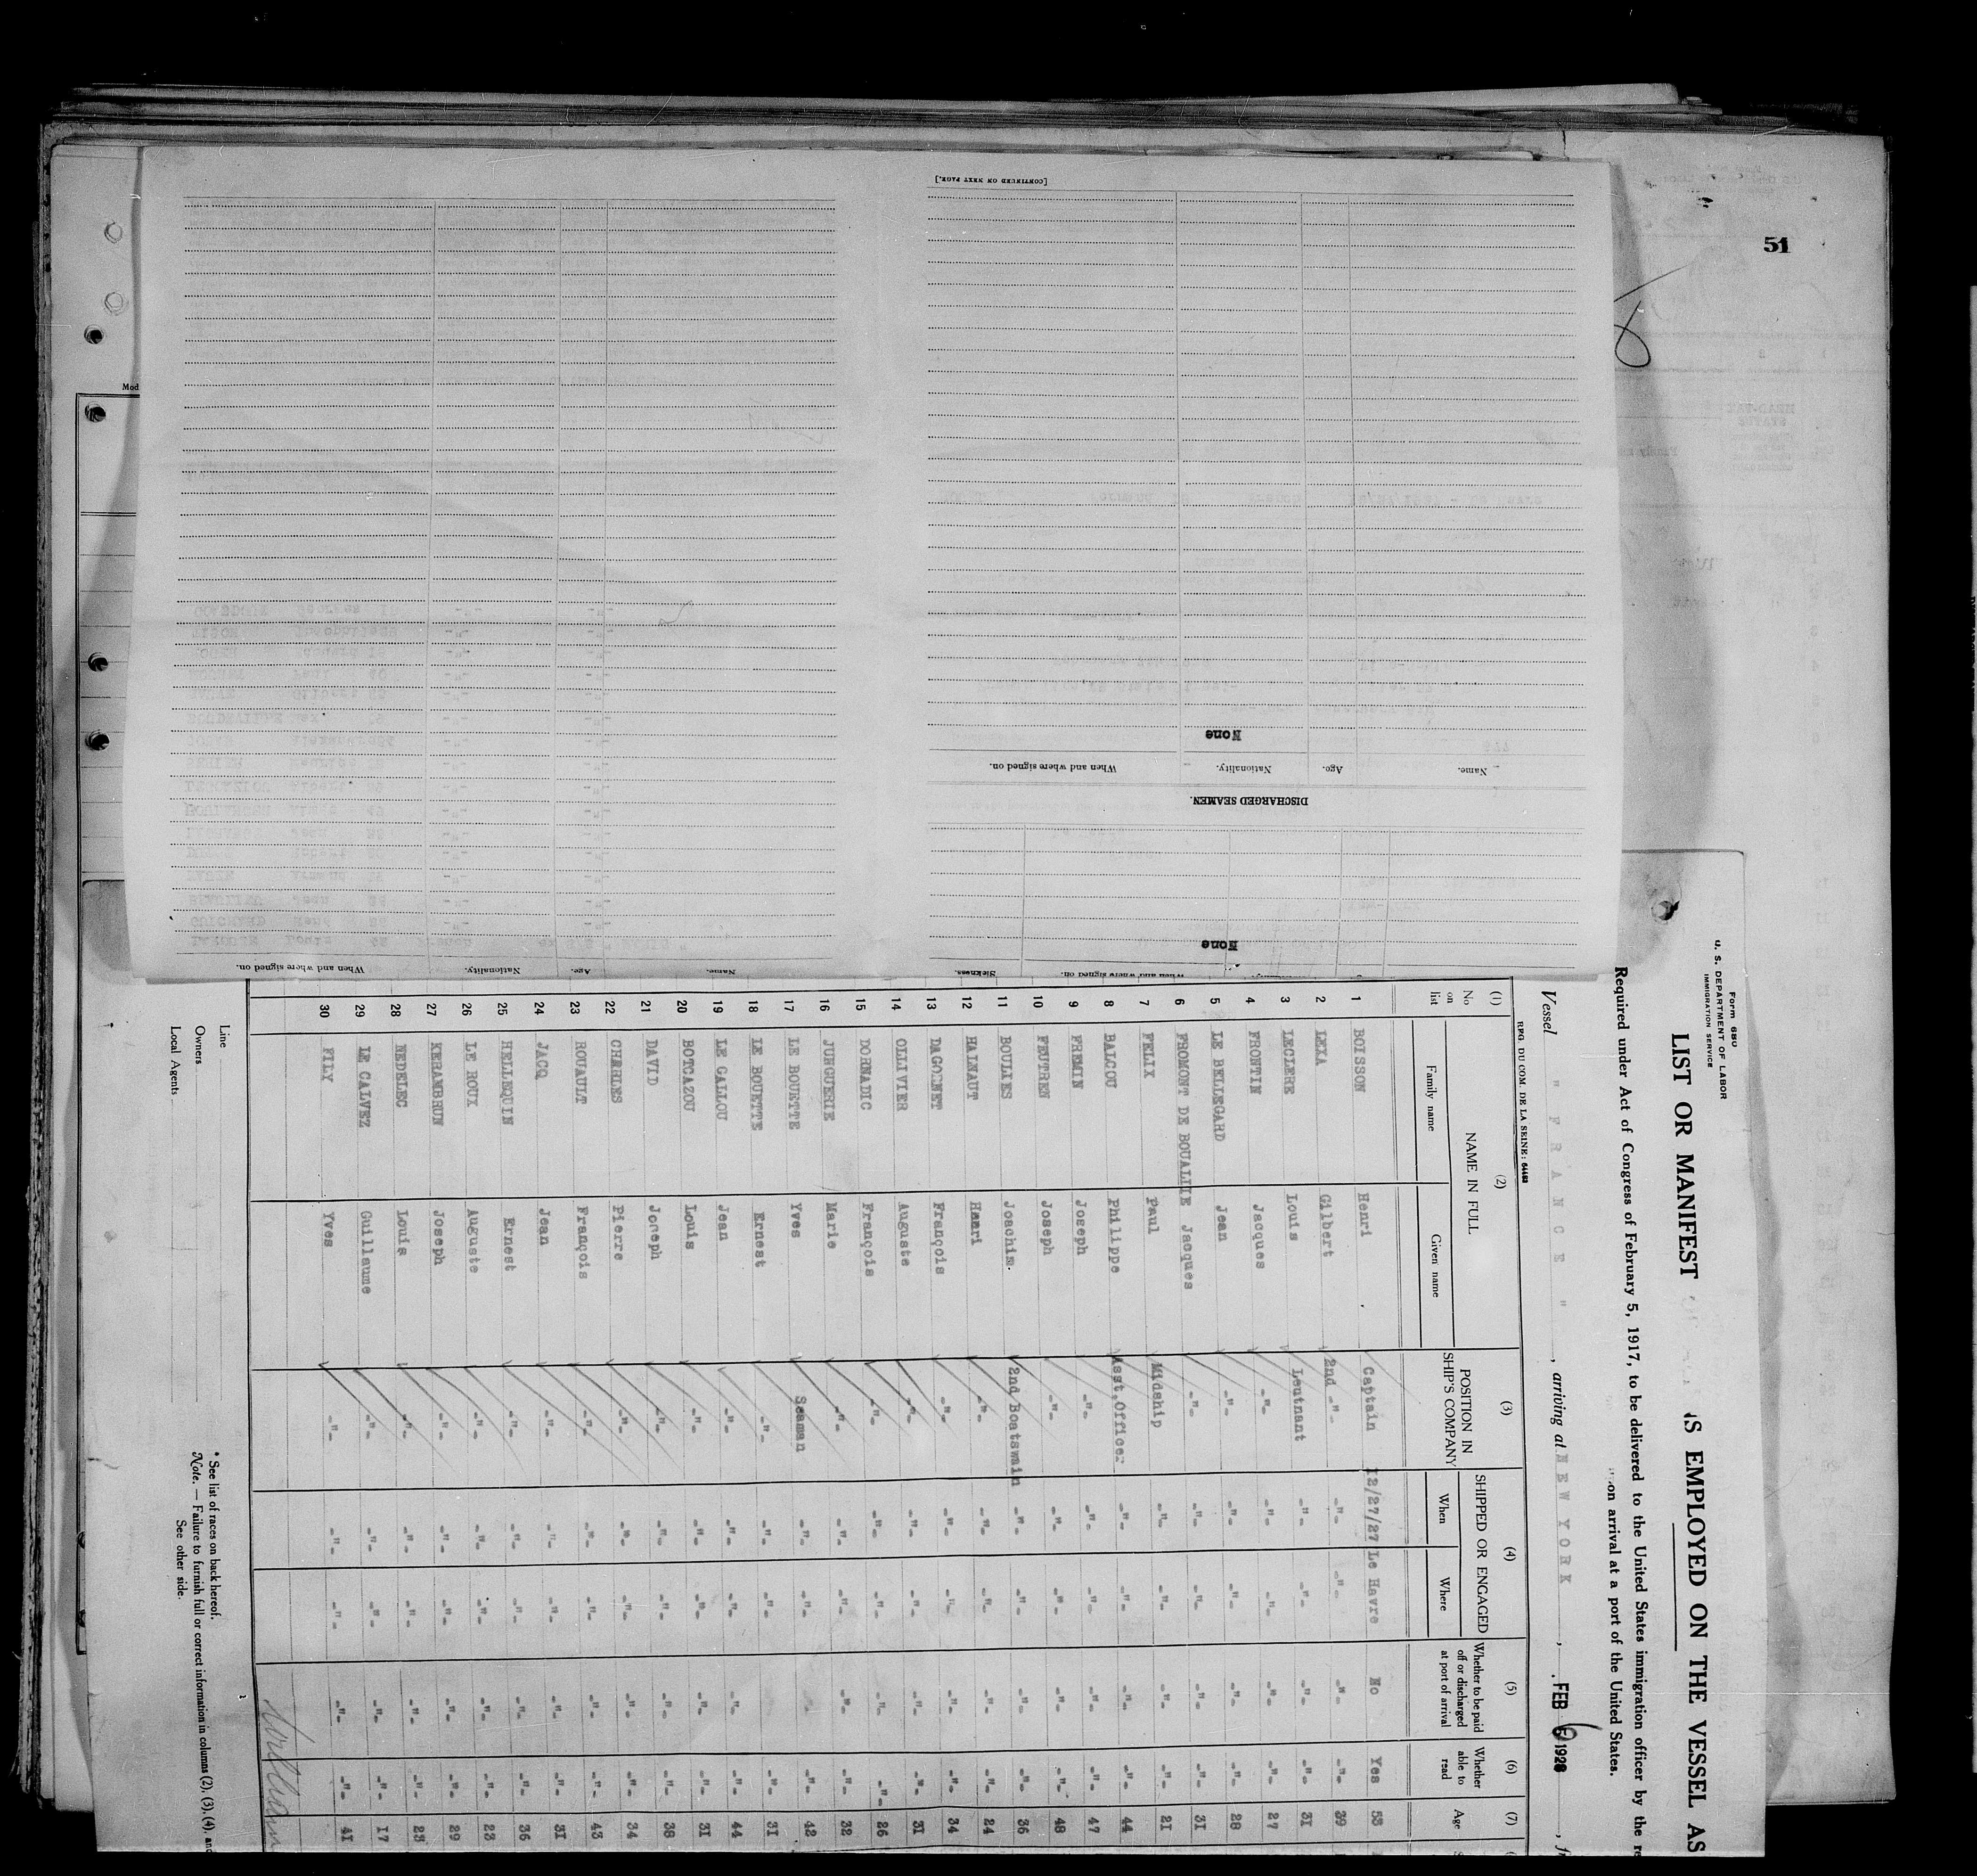 51
Form 680
U. S. DEPARTMENT OF LABOR
IMMIGRATION SERVICE
LIST OR MANIFEST
S EMPLOYED ON THE VESSEL AS
Required under Act of Congress of February 5, 1917, to be delivered to the United States immigration officer by the re
on arrival at a port of the United States.
Vessel " FRANCE ", arriving at NEW YORK, FEB 6 1928
REG. DU COM. DE LA SEINE:
(1) (2) (3) (4) (5) (6) (7)
No on list NAME IN FULL POSITION IN SHIP'S COMPANY SHIPPED OR ENGAGED Whether to be paid off or discharged at port of arrival Whether able to read Age
Family name Given name When Where
1 BOISSON Henri Captain 12/27/27 Le Havre No Yes 53
2 LEXA Gilbert 2nd -"- -"- -"- -"- -"- 39
3 LECLERE Louis Leutnant -"- -"- -"- -"- 31
4 FRONTIN Jacques -"- -"- -"- -"- -"- 27
5 LE BELLEGARD Jean -"- -"- -"- -"- -"- 28
6 FROMONT DE BOUALLIE Jacques -"- -"- -"- -"- -"- 31
7 FELIX Paul Midship -"- -"- -"- -"- 21
8 BALCOU Philippe Asst.Officer -"- -"- -"- -"- 44
9 FREMIN Joseph -"- -"- -"- -"- -"- 47
10 FEUTREN Joseph -"- -"- -"- -"- -"- 48
11 BOULIES Joachim. 2nd Boatswain -"- -"- -"- -"- 36
12 HALNAUT Henri -"- -"- -"- -"- -"- 24
13 DAGORNET François -"- -"- -"- -"- -"- 34
14 OLLIVIER Auguste -"- -"- -"- -"- -"- 31
15 DORNADIC François -"- -"- -"- -"- -"- 26
16 JUNGUERIE Marie -"- -"- -"- -"- -"- 32
17 LE BOUETTE Yves Seaman -"- -"- -"- -"- 42
18 LE BOUETTE Ernest -"- -"- -"- -"- 31
19 LE CALLOU Jean -"- -"- -"- -"- -"- 44
20 BOTCAZOU Louis -"- -"- -"- -"- -"- 31
21 DAVID Joseph -"- -"- -"- -"- -"- 38
22 CHARLES Pierre -"- -"- -"- -"- -"- 34
23 ROUAULT François -"- -"- -"- -"- -"- 43
24 JACQ Jean -"- -"- -"- -"- -"- 31
25 HELLEQUIN Ernest -"- -"- -"- -"- -"- 36
26 LE ROUX Auguste -"- -"- -"- -"- -"- 23
27 KERAMBRUN Joseph -"- -"- -"- -"- -"- 29
28 NEDELEC Louis -"- -"- -"- -"- -"- 23
29 LE CALVEZ Guillaume -"- -"- -"- -"- -"- 17
30 FILY Yves -"- -"- -"- -"- -"- 41
Line
Owners
Local Agents
* See list of races on back hereof.
Note. — Failure to furnish full or correct information in columns (2), (3), (4), and
See other side.
None
When and where signed on. Sickness.
DISCHARGED SEAMEN.
Name. Age. Nationality. When and where signed on.
None
[CONTINUED ON NEXT PAGE.]
Name. Age. Nationality. When and where signed on.
Mod